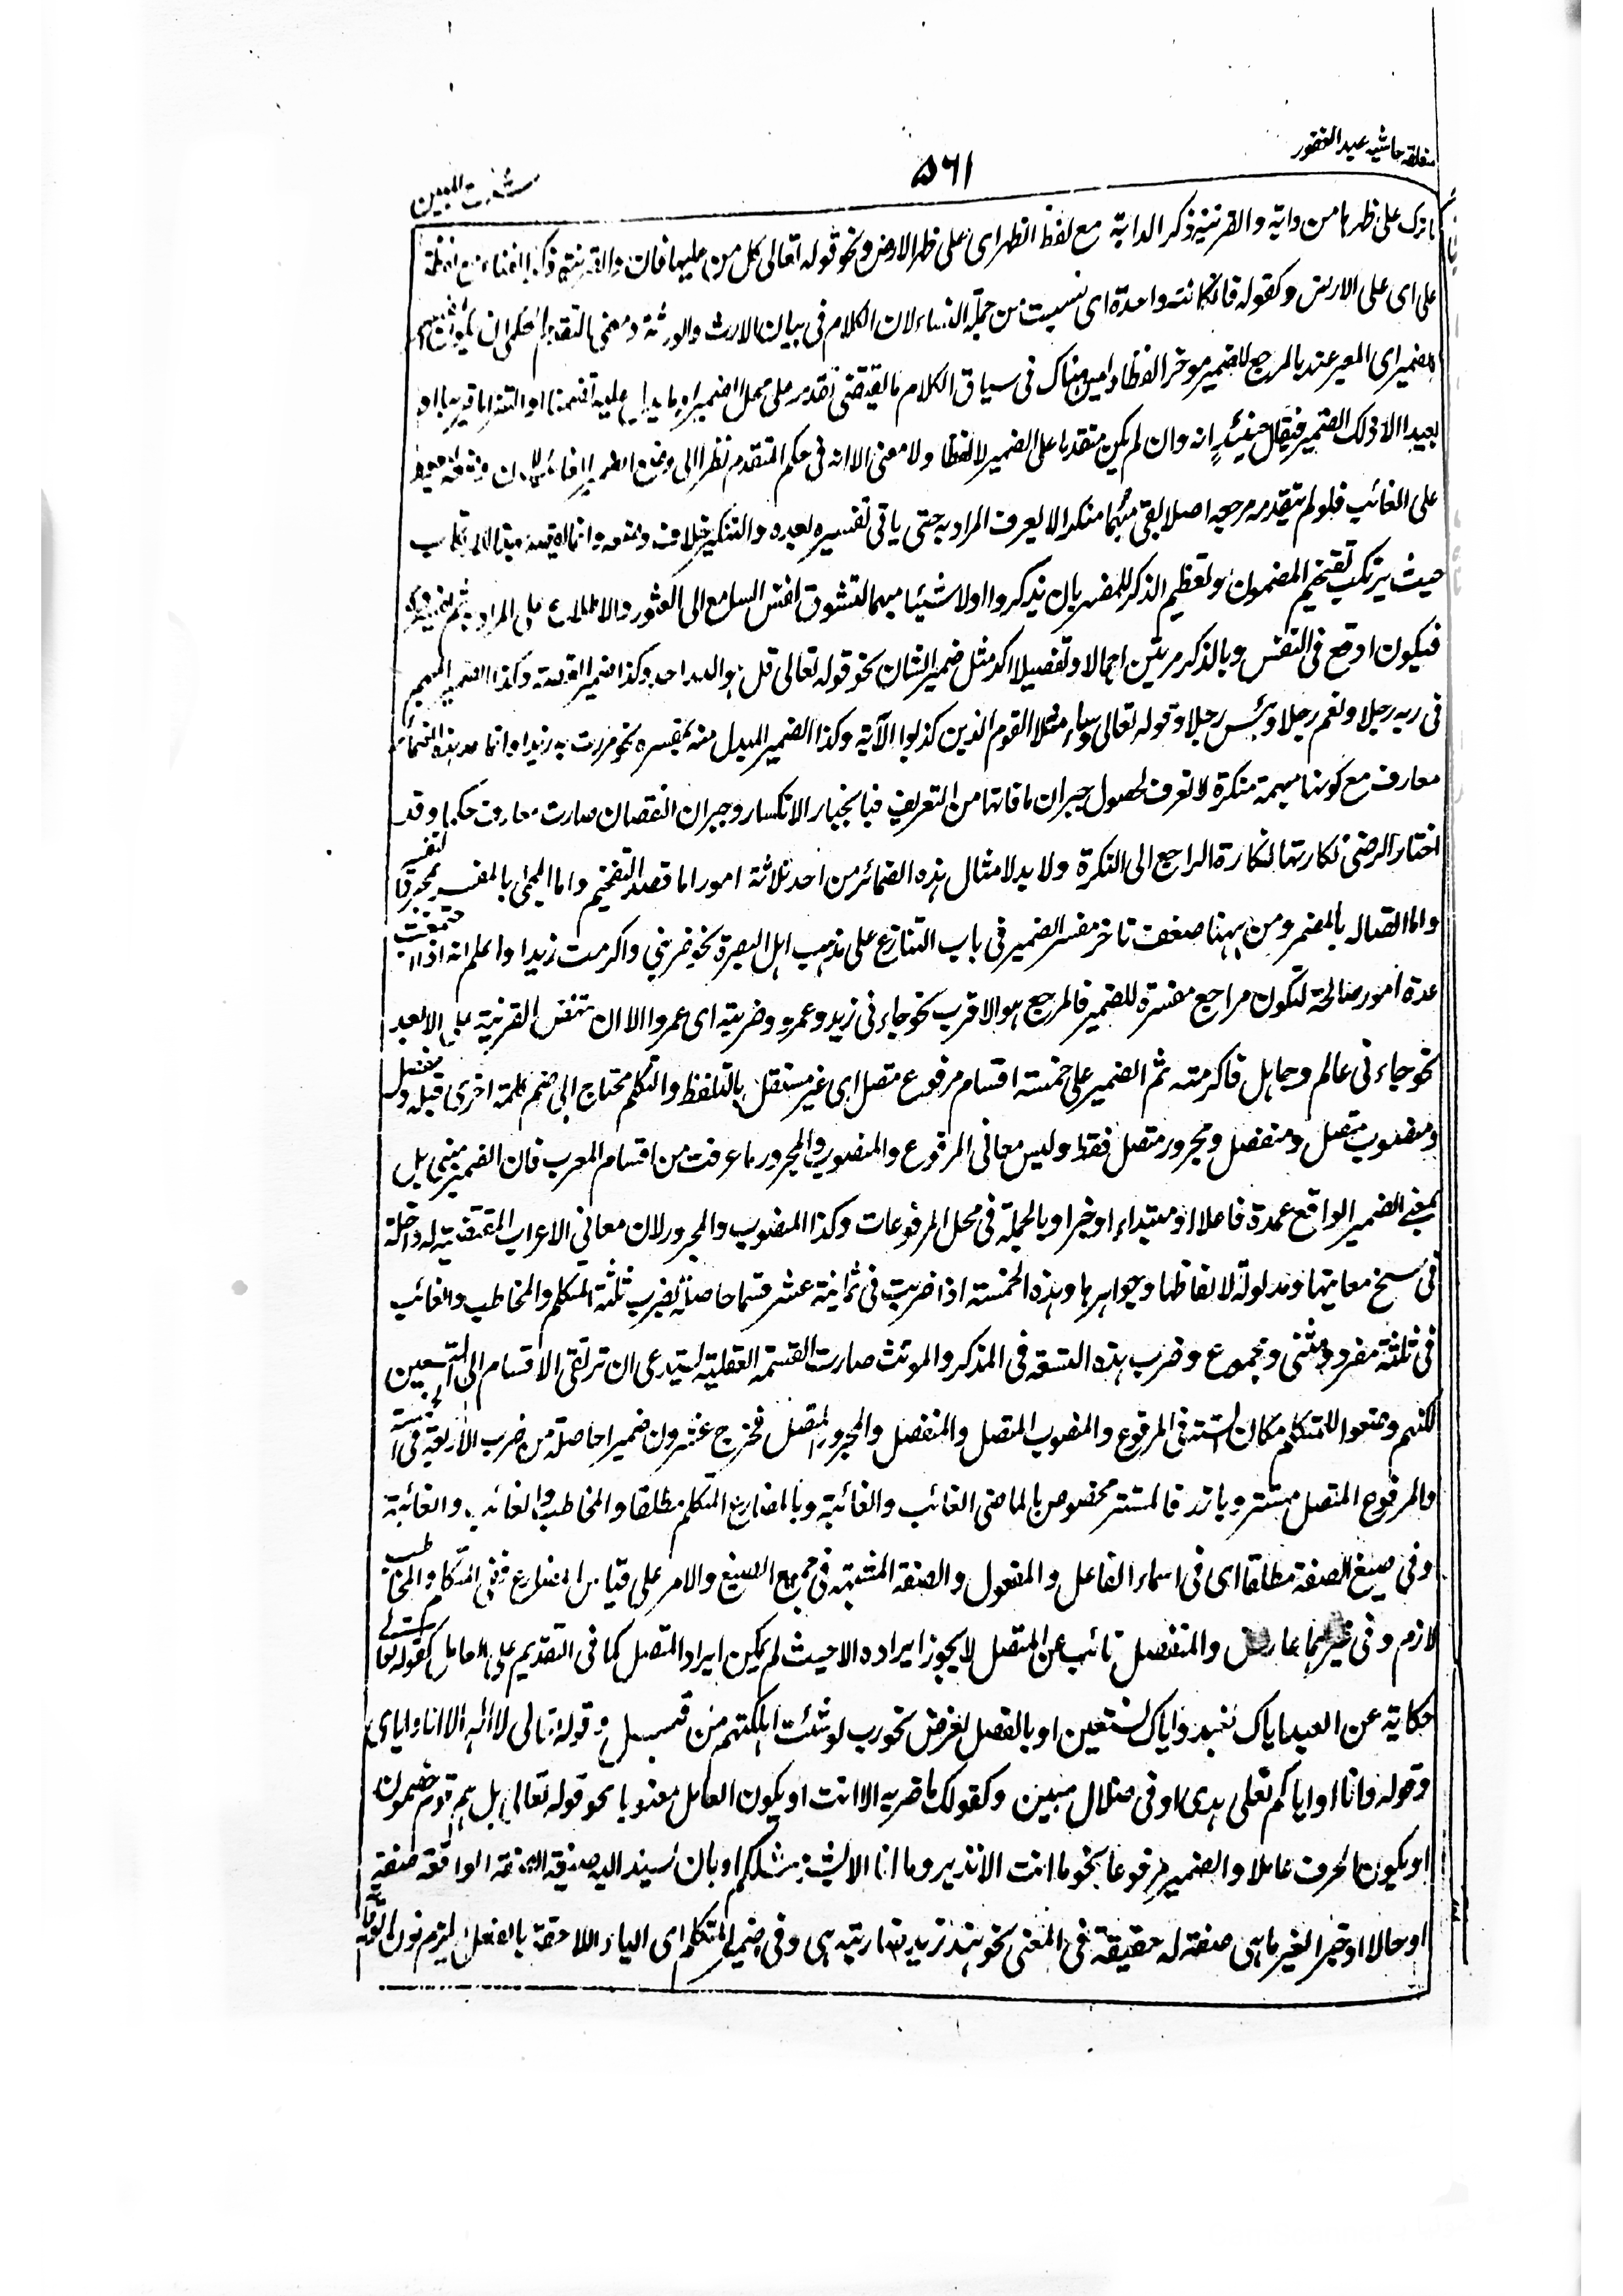 متعلقه حاشیه عبد الغفور
۵۶۱
ما ترک علی ظهرها من دابة والقرینة ذکر الدابة مع لفظ الظهر ای علی ظهر الارض ونحو قوله تعالی کل من علیها فان والقرینة ذکر الفناء مع لفظة
علی ای علی الارض وکقوله فان کانت واحدة ای نسیبت من جملة النساء لان الکلام فی بیان الارث والورثة ومعنی التقدم الحکمی ان یکون
الضمیر ای المعبر عنه بالمرجع للضمیر موخرا لفظا ولیس هناک فی سیاق الکلام ما یقتضی تقدمه علی محل الضمیر ولا ما یدل علیه تضمنا او التزاما قریبا او
بعیدا الا ذلک الضمیر فیقال حینئذ انه وان لم یکن متقدما علی الضمیر لا لفظا ولا معنی الا انه فی حکم المتقدم نظرا الی وضع الضمیر الغائب لان
علی الغائب فلو لم یتقدمه مرجعه اصلا بقی مبهما منکرا لا یعرف المراد به حتی یاتی تفسیره بعده والتنکیر خلاف وضعه وانما
حیث یرتکب تفخیم المضمون وتعظیم الذکر للمضمر بان یذکروا اولا شیئا مبهما لتشوق نفس السامع الی العثور والاطلاع علی المراد به ثم
فیکون اوقع فی النفس وبالذکر مرتین اجمالا وتفصیلا اکد مثل ضمیر الشان نحو قوله تعالی قل هو الله احد وکذا ضمیر القصة وکذا الضمیر المبهم
فی ربه رجلا ونعم رجلا وبئس رجلا وقوله تعالی ساء مثلا القوم الذین کذبوا الآیة وکذا الضمیر المبدل منه بمفسره نحو مررت به زید وانما هذه الضمائر
معارف مع کونها مبهمة منکرة لا تعرف لحصول جبران ما فاتها من التعریف فبانجبار الانکسار وجبران النقصان صارت معارف حکما وقد
اختار الرضی نکارتها لنکارة الراجع الی النکرة ولا بد لامثال هذه الضمائر من احد ثلاثة امور اما قصد التفخیم واما المجئ بالمفسر لمجرد التفسیر
واما اتصاله بالمضمر ومن ههنا ضعف تاخر مفسر الضمیر فی باب التنازع علی مذهب اهل البصرة نحو ضربنی واکرمت زیدا واعلم انه اذا اجتمعت
عدة امور صالحة لتکون مراجع مفسرة للضمیر فالمرجع هو الاقرب نحو جاءنی زید وعمرو وضربته ای عمروا الا ان تنقض القرینة علی الابعد
نحو جاءنی عالم وجاهل فاکرمته ثم الضمیر علی خمسة اقسام مرفوع متصل ای غیر مستقل بالتلفظ والتکلم محتاج الی ضم کلمة اخری قبله ومنفصل
ومنصوب متصل ومنفصل ومجرور متصل فقط ولیس معانی المرفوع والمنصوب والمجرور ما عرفت من اقسام المعرب فان الضمیر مبنی بل
بمعنی الضمیر الواقع عمدة فاعلا او مبتداء او خبرا وبالجملة فی محل المرفوعات وکذا المنصوب والمجرور لان معانی الاعراب المقتضیة له داخلة
فی سنخ معانیها ومدلولة لالفاظها وجواهرها وهذه الخمسة اذا ضربت فی ثمانیة عشر قسما حاصلة بضرب ثلثة المتکلم والمخاطب والغائب
فی ثلثة مفرد ومثنی ومجموع وضرب هذه التسعة فی المذکر والمونث صارت القسمة العقلیة لیتدعی ان ترتقی الاقسام الی التسعین
لکنهم وضعوا للمتکلم مکان الستة فی المرفوع والمنصوب المتصل والمنفصل والمجرور المتصل فخرج عشرون ضمیرا حاصلة من ضرب الاربعة فی الخمسة
والمرفوع المتصل مستتر وبارز فالمستتر مخصوص بالماضی الغائب والغائبة وبالمضارع المتکلم مطلقا والمخاطب والغائب والغائبة
وفی صیغ الصفة مطلقا ای فی اسماء الفاعل والمفعول والصفة المشبهة فی جمیع الصیغ والامر علی قیاس المضارع ففی المتکلم والمخاطب
لازم وفی غیرهما عارض والمنفصل نائب عن المتصل لا یجوز ایراده الا حیث لم یمکن ایراد المتصل کما فی التقدیم علی العامل کقوله تعالی
حکایة عن العبد ایاک نعبد وایاک نستعین او بالفصل لغرض نحو رب لو شئت اهلکتهم من قبل وقوله تعالی لا اله الا انا وایای
وقوله وانا او ایاکم لعلی هدی او فی ضلال مبین وکقولک ما ضربه الا انت او یکون العامل معنویا نحو قوله تعالی بل هم قوم خصمون
او یکون الحرف عاملا والضمیر مرفوعا نحو ما انت الا نذیر وما انا الا بشر مثلکم او بان یسند الیه صفة الواقعة صفة
او حالا او خبرا لغیر ما هی صفة له حقیقة فی المعنی نحو هند زید ضاربته هی وفی ضمیر المتکلم ای الیاء اللاحقة بالفعل یلزم نون الوقایة